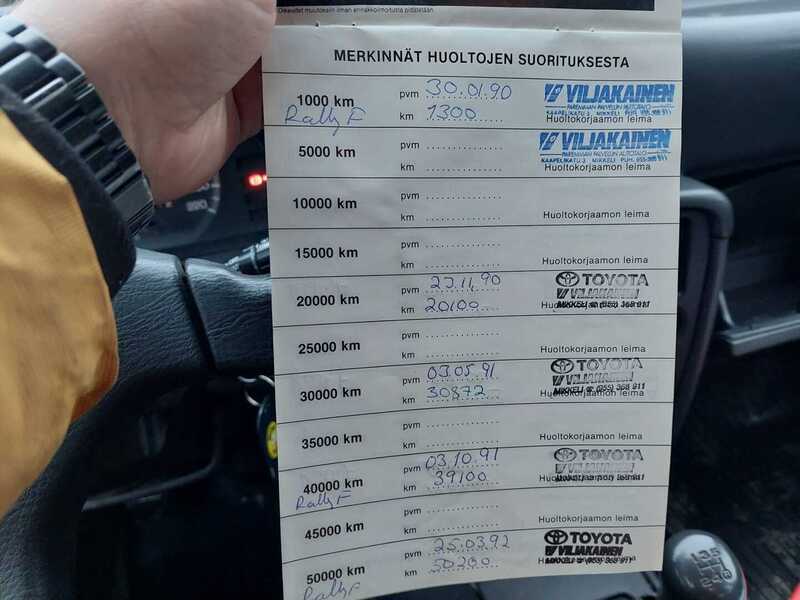 Oikeudet muutoksiin ilman ennakkoilmoitusta pidätetään.
MERKINNÄT HUOLTOJEN SUORITUKSESTA
1000 km pvm 30.01.90 VILJAKAINEN
Rally F km 1300 Huoltokorjaamon leima
KAAPELIKATU 3 MIKKELI PUH.
5000 km pvm VILJAKAINEN
KAAPELIKATU 3, MIKKELI PUH.
km Huoltokorjaamon leima
10000 km pvm
km Huoltokorjaamon leima
15000 km pvm
km Huoltokorjaamon leima
20000 km pvm 22.11.90 TOYOTA
VILJAKAINEN
km 20100 MIKKELI (955) 368 911
25000 km pvm
km Huoltokorjaamon leima
30000 km pvm 03.05.91 TOYOTA
VILJAKAINEN
km 30872 MIKKELI (955) 368 911
35000 km pvm
km Huoltokorjaamon leima
40000 km pvm 03.10.91 TOYOTA
Rally F km 39100 VILJAKAINEN
45000 km pvm
km Huoltokorjaamon leima
50000 km pvm 25.03.92 TOYOTA
VILJAKAINEN
Rally F km 50200 MIKKELI (955) 368 911
220